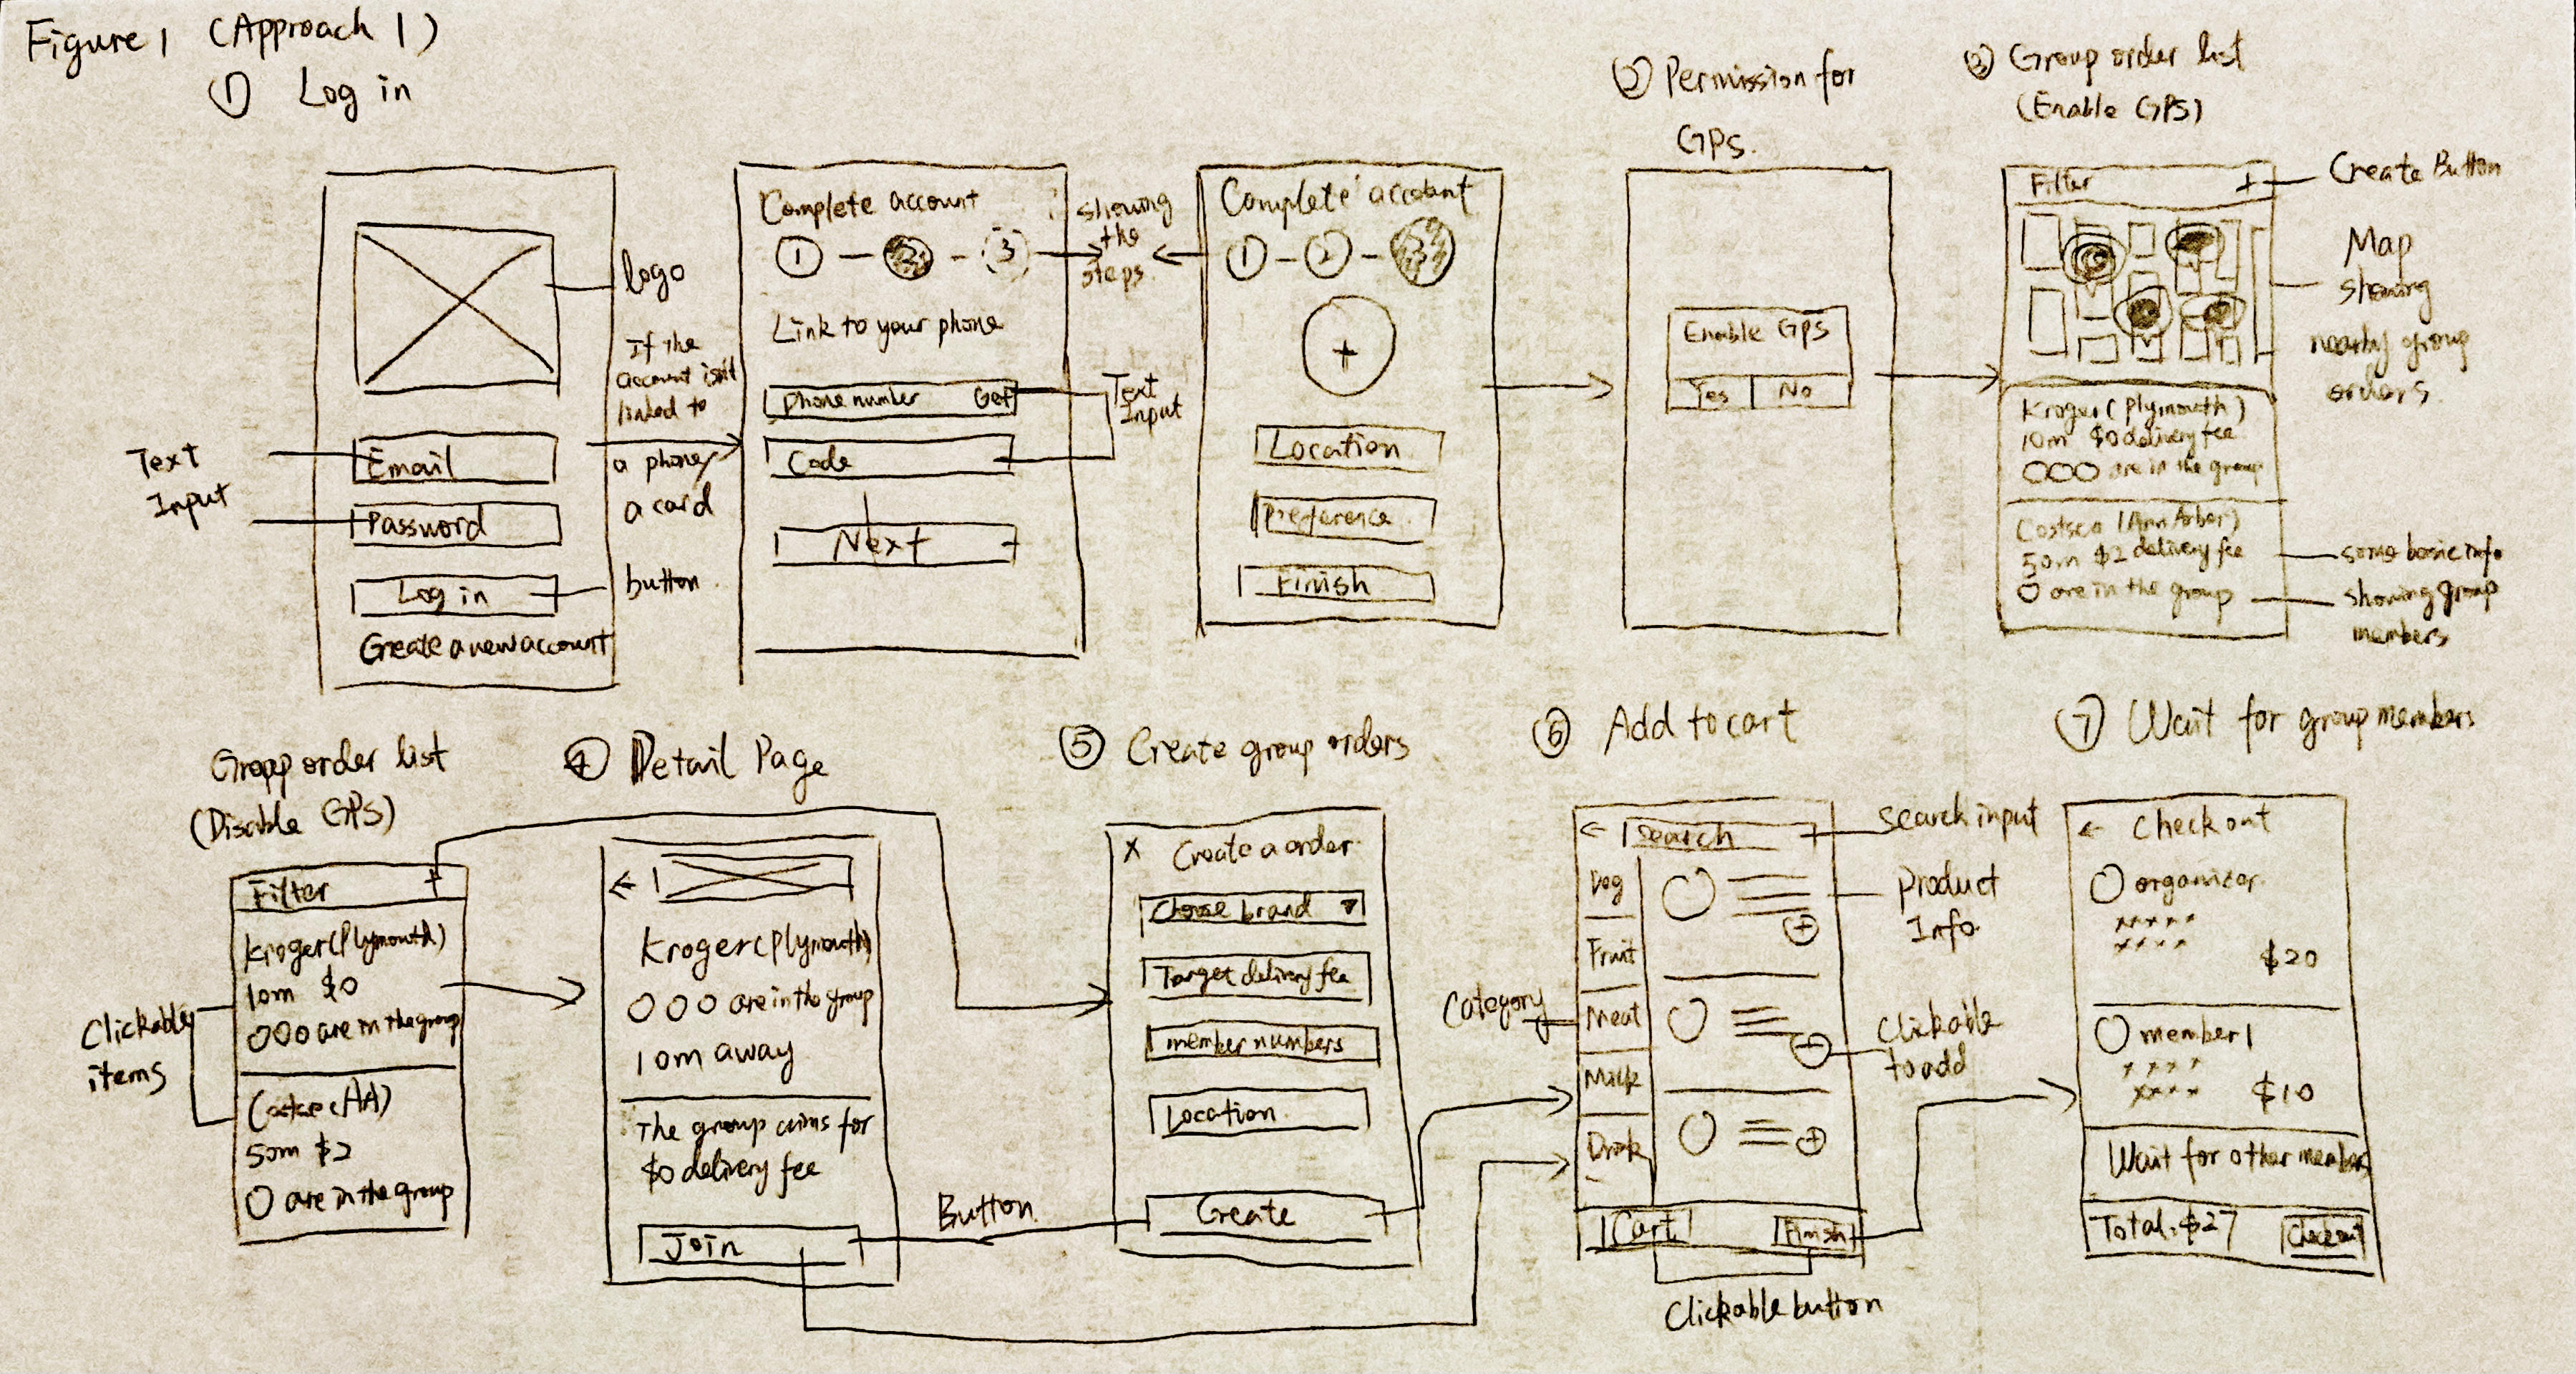 Figure 1 (Approach 1)
① Log in
logo
If the
account isn't
linked to
a phone/
a card
Text
Input
Email
Password
Log in
button
Create a new account
Complete account
① — ② - ③
showing
the
steps
Link to your phone
Phone number Get
Code
Text
Input
Next
Complete account
① - ② - ③
+
Location
Preference
Finish
② Permission for
GPS.
Enable GPS
Yes No
③ Group order list
(Enable GPS)
Filter +
Create Button
Map
showing
nearby group
orders.
Kroger (Plymouth)
10m $0 delivery fee
OOO are in the group
Costsco (Ann Arbor)
50m $2 delivery fee
O are in the group
some basic info
showing group
members
Group order list
(Disable GPS)
Filter +
Kroger (Plymouth)
10m $0
OOO are in the group
(AA)
50m $2
O are in the group
Clickable
items
④ Detail Page
←
Kroger (Plymouth)
O O O are in the group
10m away
The group aims for
$0 delivery fee
Join
Button
⑤ Create group orders
X Create a order
Choose brand ▼
Target delivery fee
member numbers
Location
Create
⑥ Add to cart
← Search
search input
Fruit
Meat
Milk
Drink
Category
Product
Info
Clickable
to add
Cart Finish
Clickable button
⑦ Wait for group members
← Check out
O organizer
xxxxx
xxxx
$20
O member 1
xxxx
xxxx $10
Wait for other members
Total: $27 Checkout